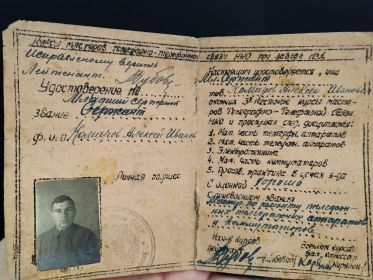 Курсы мастеров телеграфно-телефонной
Исправленному верить
Лейтенант
Удостоверение №
Младший сержант
Звание Сержант
ф. и. о.
Алексей Иванов
Личная подпись
связи НКО при заводе
Настоящим удостоверяется, что
Мл. Сержант
тов. Алексей Иванович
окончил месячные курсы масте-
ров Телеграфно-Телефонной связи
НКО и прослушал след. дисциплины:
1. Мат. часть телефон. аппаратов
2. Мат. часть телегр. аппаратов
3. Электротехника
4. Мат. часть коммутаторов
5. Произв. практика в цехах з-да
С оценкой хорошо
С присвоением звания
Мастер по ремонту телефон-
ных телеграфных аппаратов
и коммутаторов
Нач-к курсов